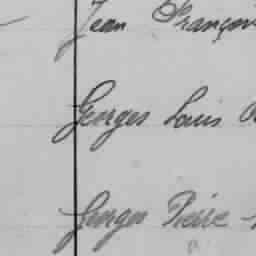 Jean François
Georges Louis
Georges Pierre